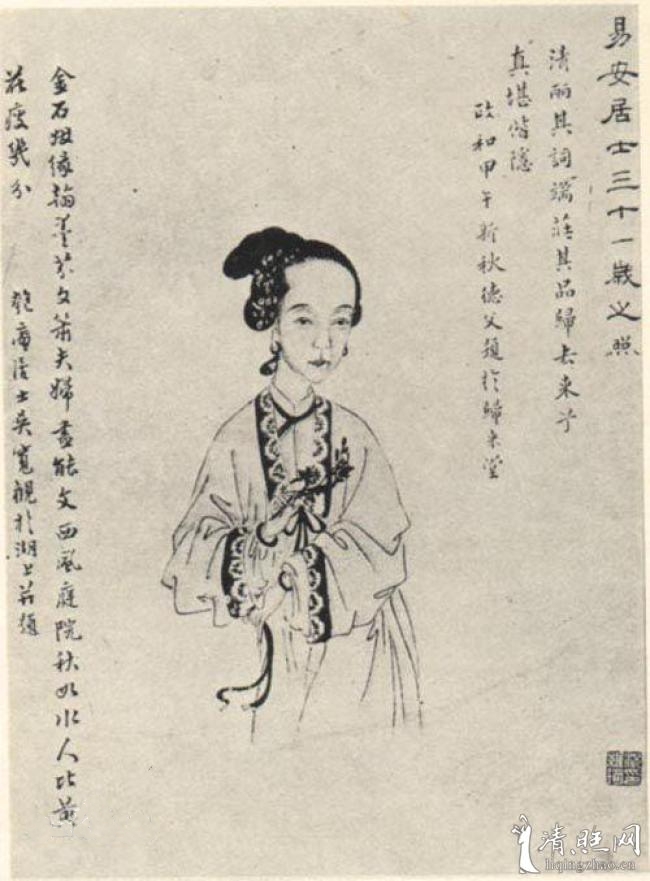 易安居士三十一歲之照
清丽其詞端莊其品歸去來兮
真堪偕隱
政和甲午新秋德父題於歸来堂
金石姻缘翰墨芬文簫夫婦盡能文西風庭院秋如水人比黄
花瘦幾分
匏庵居士吳寬觀於湖上并題
清旺网
liqingzhao.cn